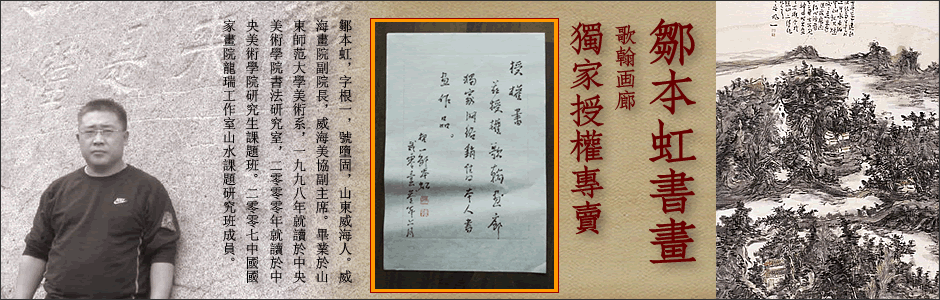 鄒本虹書畫
歌翰画廊
獨家授權專賣
授權書
茲授權歌翰画廊
獨家網絡銷售本人書
画作品。
根一鄒本虹
鄒本虹，字根一，號墮固，山東威海人。威
海畫院副院長、威海美協副主席。畢業於山
東師范大學美術系，一九九八年就讀於中央
美術學院書法研究室，二零零年就讀於中
央美術學院研究生課題班。二零零七中國國
家畫院龍瑞工作室山水課題研究班成員。